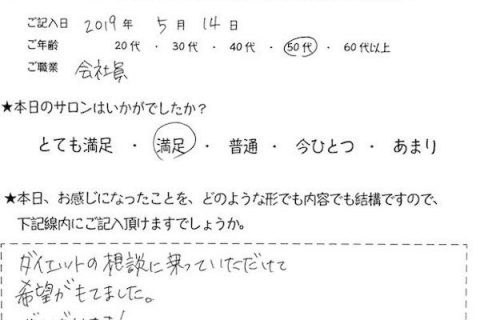 ご記入日 2019年 5月 14日
ご年齢 20代 ・ 30代 ・ 40代 ・ 50代 ・ 60代以上
ご職業 会社員
★本日のサロンはいかがでしたか？
とても満足 ・ 満足 ・ 普通 ・ 今ひとつ ・ あまり
★本日、お感じになったことを、どのような形でも内容でも結構ですので、
下記線内にご記入頂けますでしょうか。
ダイエットの相談に乗っていただけて
希望がもてました。